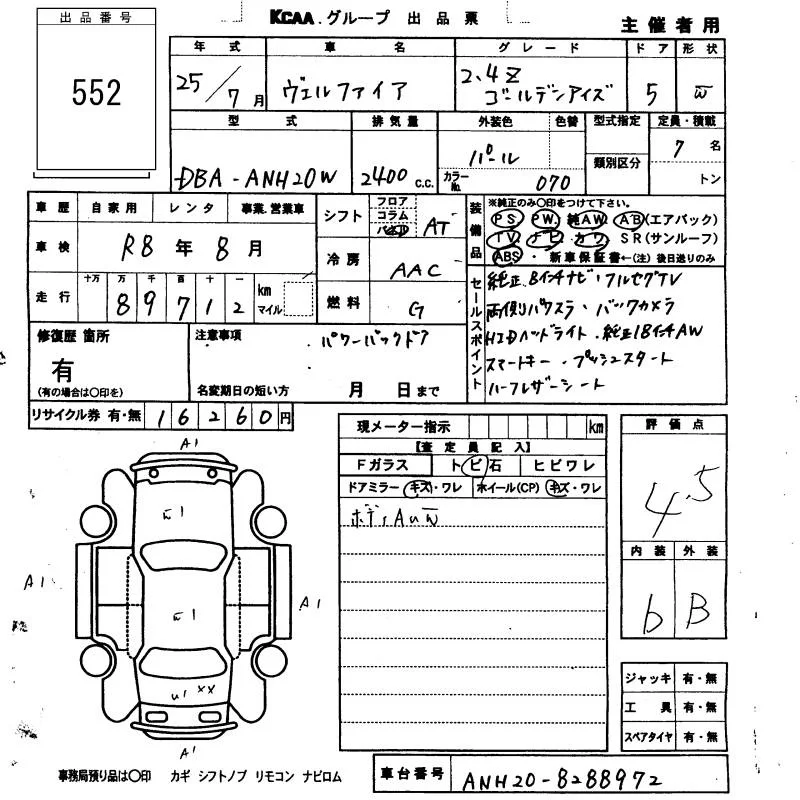 出品番号
552
KCAA.グループ 出品票
主催者用
年式 車名 グレード ドア 形状
25/7月 ヴェルファイア 2.4Z ゴールデンアイズ 5 W
型式 排気量 外装色 色替 型式指定 定員・積載
DBA-ANH20W 2400 c.c. パール 7名
カラーNo. 070 類別区分 トン
車歴 自家用 レンタ 事業.営業車
車検 R8年8月
走行 十万 万 千 百 十 一
89712 km マイル
シフト フロア コラム パネル AT
冷房 AAC
燃料 G
装備品
※純正のみ○印をつけて下さい。
PS PW 純AW AB(エアバック)
TV ナビ カワ SR(サンルーフ)
ABS・新車保証書←(注)後日送りのみ
セールスポイント
純正8インチナビ・フルセグTV
両側パワスラ・バックカメラ
HIDヘッドライト・純正18インチAW
スマートキー・プッシュスタート
ハーフレザーシート
修復歴 箇所
有
(有の場合は○印を)
注意事項 パワーバックドア
名変期日の短い方 月 日まで
リサイクル券 有・無 16260円
現メーター指示 km
【査定員記入】
Fガラス トビ石 ヒビワレ
ドアミラー キズ・ワレ ホイール(CP) キズ・ワレ
ボディAu
評価点
4.5
内装 外装
b B
A1
A1
A1
A1
ジャッキ 有・無
工具 有・無
スペアタイヤ 有・無
事務局預り品は○印 カギ シフトノブ リモコン ナビロム
車台番号 ANH20-8288972